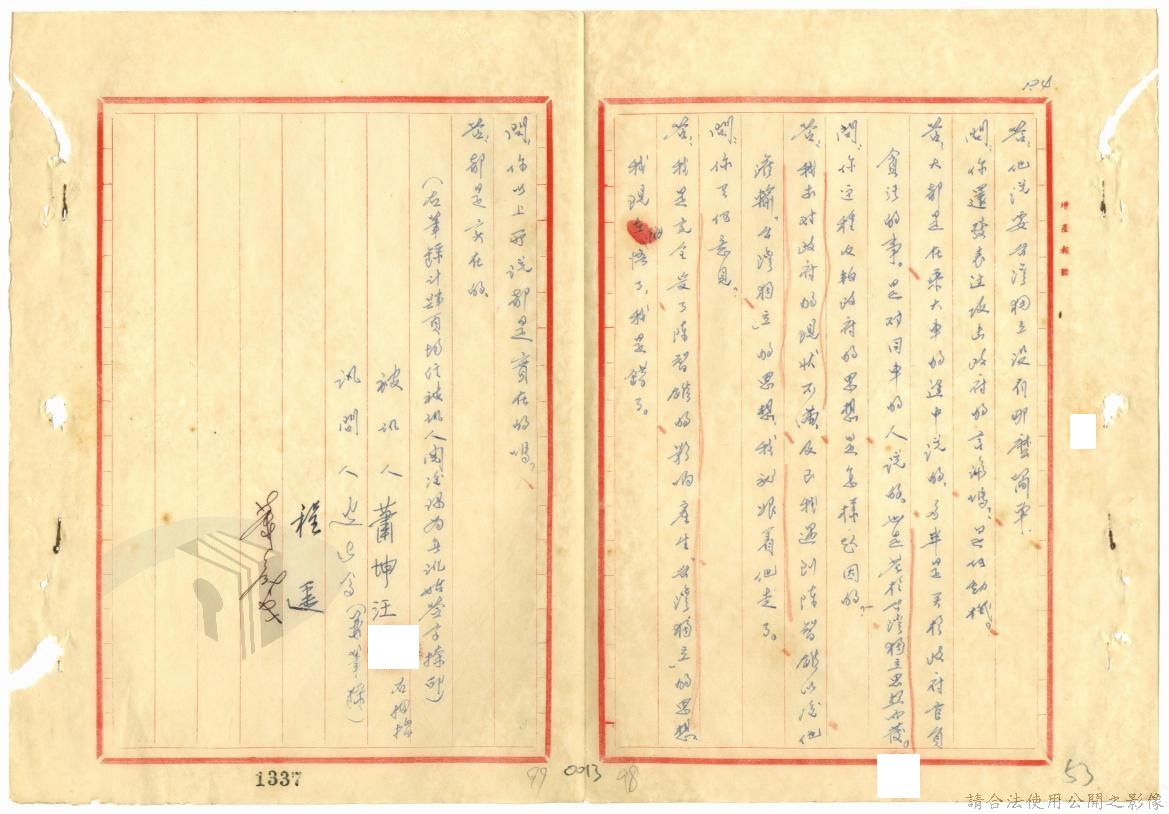 答:他說要台灣獨立沒有那麼簡單.
問:你還發表過攻击政府的言論嗎?是何動機。
答:大部是在乘大車的途中說的,多半是关於政府官員
貪污的事。是对同車的人說的。也是基於台灣獨立思想而發。
問:你這种反對政府的思想是怎樣起因的?
答:我本对政府的現状不滿,及至我遇到陳智雄以後他
灌輸「台灣獨立」的思想,我就跟着他走了。
問:你有何意見?
答:我是完全受了陳智雄的影响產生「台灣獨立」的思想.
我現在悟了,我是錯了。
問:你以上所說都是實在的嗎?
答:都是实在的.
(右筆錄計肆頁均經被訊人閱後認為無訛始簽字捺印)
被訊人 蕭坤汪
右拇指
訊問人
程遥
1337
99 0013 98
53
請合法使用公開之影像